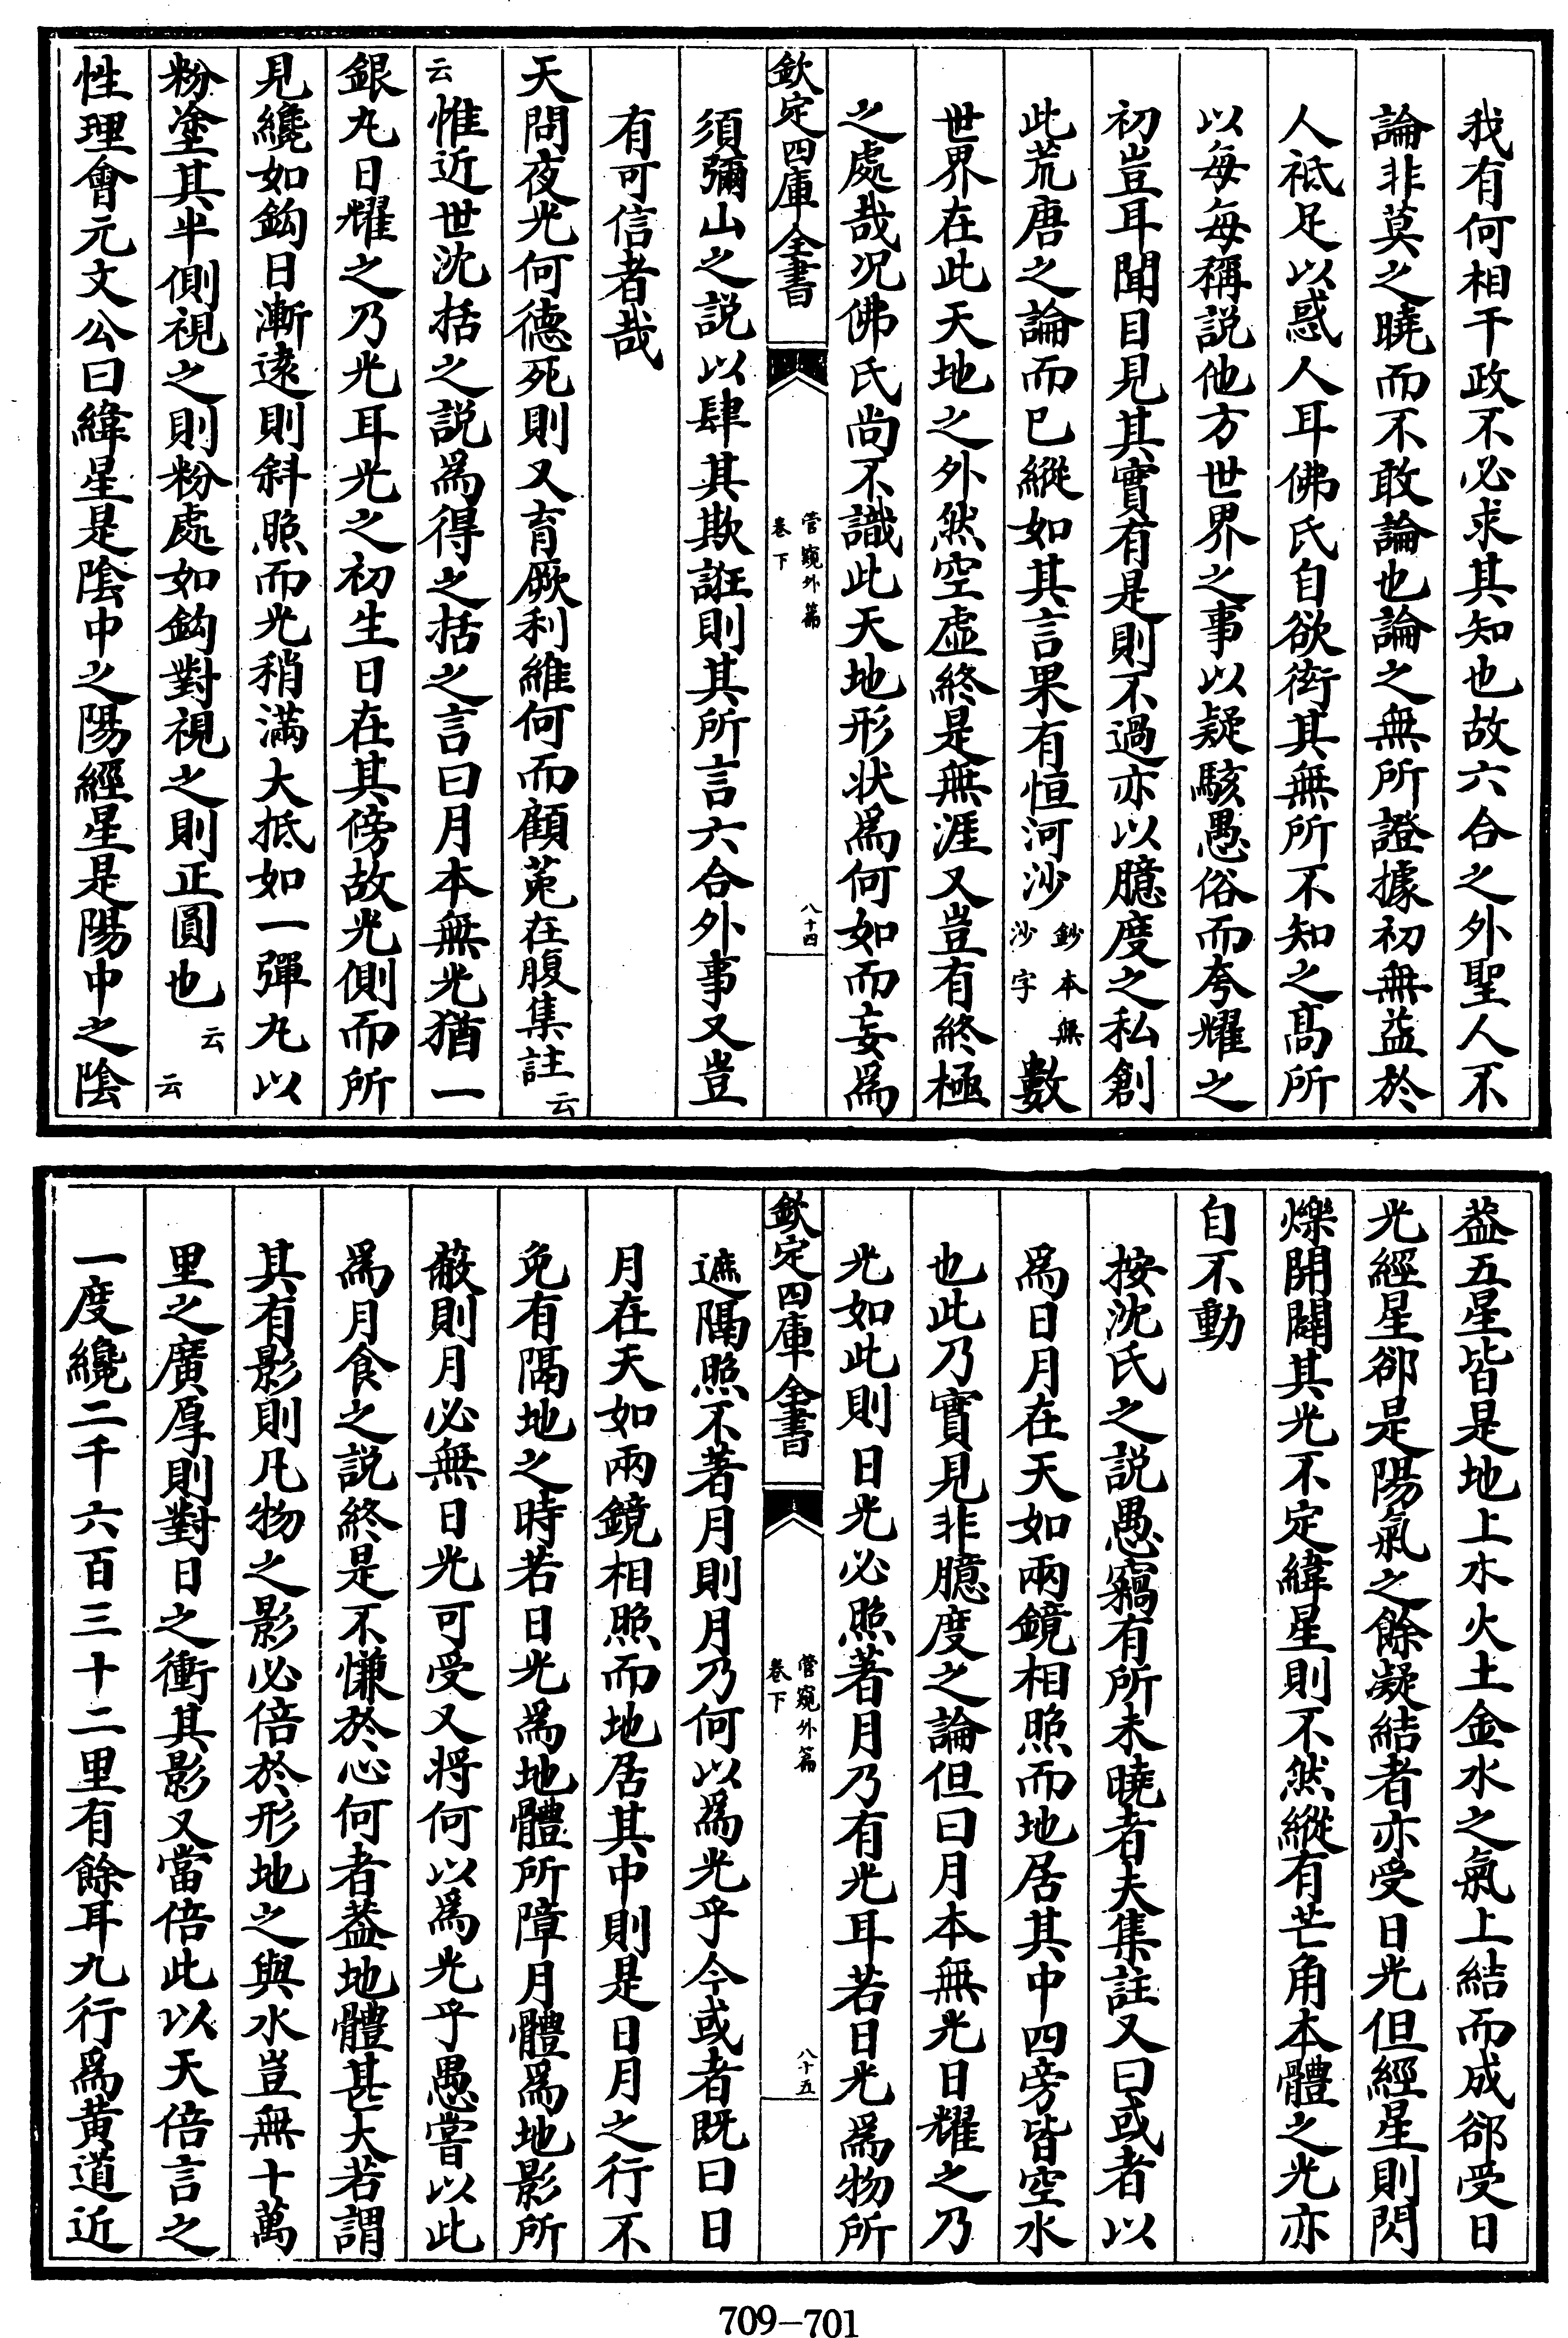 我有何相干政不必求其知也故六合之外聖人不
論非莫之曉而不敢論也論之無所證據初無益於
人祗足以惑人耳佛氏自欲衒其無所不知之髙所
以每每稱説他方世界之事以疑駭愚俗而夸耀之
初豈耳聞目見其實有是則不過亦以臆度之私創
此荒唐之論而已縱如其言果有恒河沙鈔本無沙字數
世界在此天地之外然空虛終是無涯又豈有終極
之處哉况佛氏尚不識此天地形状為何如而妄為
欽定四庫全書
管窺外篇
卷下
八十四
須彌山之説以肆其欺誑則其所言六合外事又豈
有可信者哉
天問夜光何德死則又育厥利維何而顧菟在腹集註云
云惟近世沈括之説為得之括之言曰月本無光猶一
銀丸日耀之乃光耳光之初生日在其傍故光側而所
見纔如鈎日漸逺則斜照而光稍滿大抵如一彈丸以
粉塗其半側視之則粉處如鈎對視之則正圓也云云
性理會元文公曰緯星是陰中之陽經星是陽中之陰
葢五星皆是地上水火土金水之氣上結而成郤受日
光經星郤是陽氣之餘凝結者亦受日光但經星則閃
爍開闢其光不定緯星則不然縱有芒角本體之光亦
自不動
按沈氏之説愚竊有所未曉者夫集註又曰或者以
為日月在天如兩鏡相照而地居其中四旁皆空水
也此乃實見非臆度之論但曰月本無光日耀之乃
光如此則日光必照著月乃有光耳若日光為物所
欽定四庫全書
管窺外篇
卷下
八十五
遮隔照不著月則月乃何以為光乎今或者既曰日
月在天如兩鏡相照而地居其中則是日月之行不
免有隔地之時若日光為地體所障月體為地影所
蔽則月必無日光可受又将何以為光乎愚嘗以此
為月食之説終是不慊於心何者葢地體甚大若謂
其有影則凡物之影必倍於形地之與水豈無十萬
里之廣厚則對日之衝其影又當倍此以天倍言之
一度纔二千六百三十二里有餘耳九行為黄道近
709-701